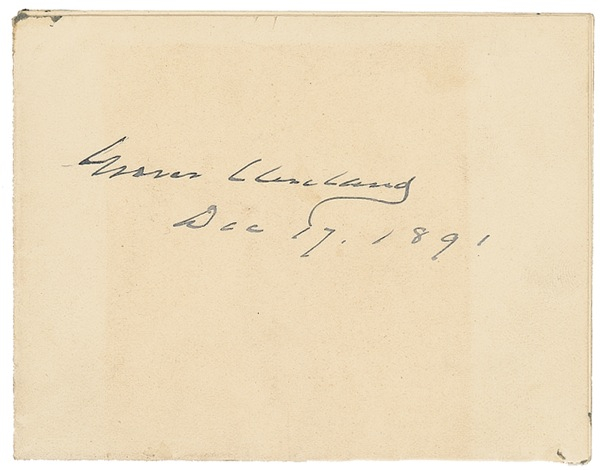 Grover Cleveland
Dec 17. 1891